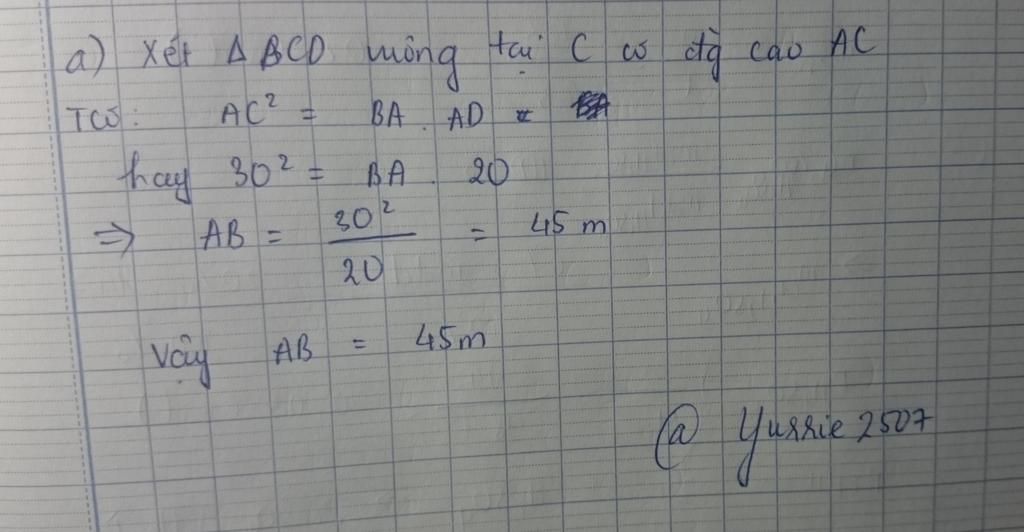 a) Xét Δ BCD vuông tại C có đg cao AC
Tcó: AC² = BA . AD =
hay 30² = BA . 20
⇒ AB = 30² / 20 = 45 m
Vậy AB = 45m
@ Yurrie 2507